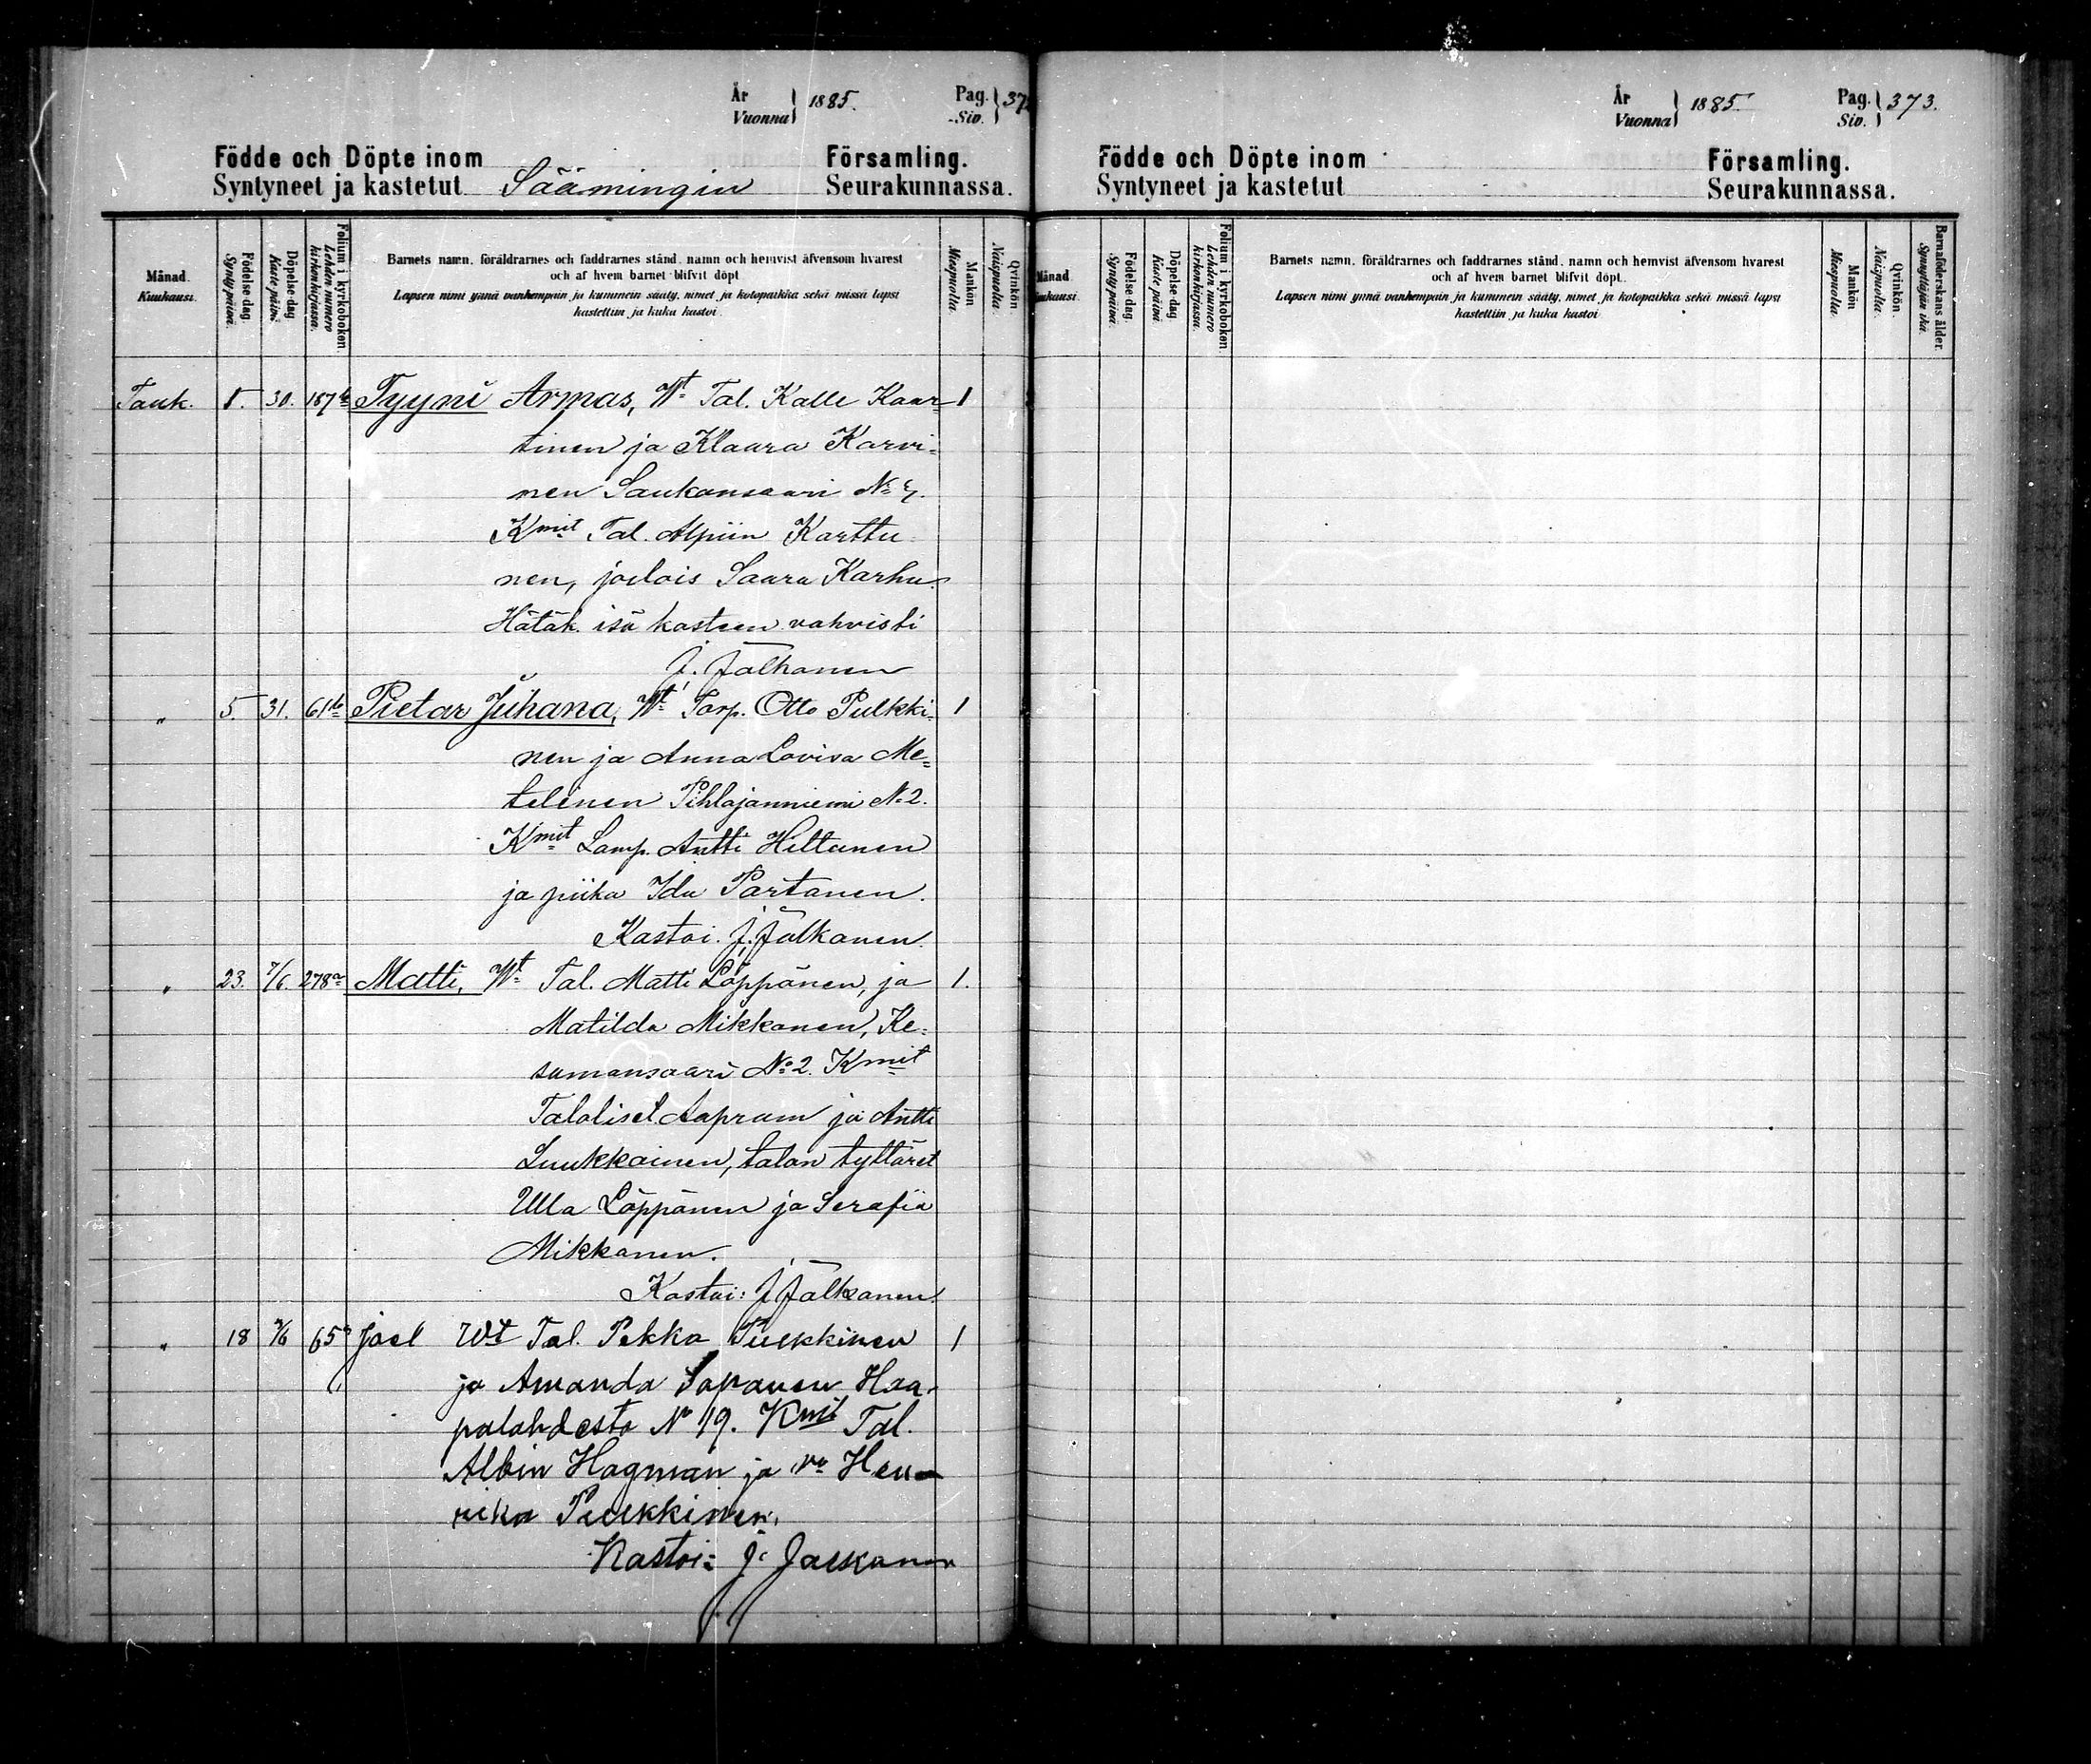 År
Vuonna
1885.
Pag.
Siv.
37
Födde och Döpte inom
Församling.
Syntyneet ja kastetut Säämingin Seurakunnassa.
Månad.
Kuukausi.
Födelse-dag.
Synty päivä.
Döpelse-dag.
Kaste päivä.
Folium i kyrkoboken.
Lehden numero kirkonkirjassa.
Barnets namn, föräldrarnes och faddrarnes stånd, namn och hemvist äfvensom hvarest
och af hvem barnet blifvit döpt.
Lapsen nimi ynnä vanhempain ja kummein sääty, nimet ja kotopaikka sekä missä lapsi
kastettiin ja kuka kastoi.
Mankön
Miespuolta.
Qvinkön
Naispuolta.
Touk. 8. 30. 187 b Tyyni Armas, Wt Tal. Kalle Kaar= 1
tinen ja Klaara Karvi=
nen Saukonsaari No
Kmit Tal. Alpiin Karttu=
nen, joulois Saara Karhu.
Hätäk. isä kasteen vahvisti
J. Jalkanen
" 5. 31. 61 b Pietar Juhana, Wt Torp. Otto Pulkki= 1
nen ja Anna Lovisa Me=
telinen Pihlajanniemi No 2.
Kmit Lamp. Antti Hiltunen
ja piika Ida Partanen.
Kastoi. J. Jalkanen.
" 23. 7/6. 278 a Matti, Wt Tal. Matti Löppönen, ja 1.
Matilda Mikkonen, Ke=
samonsaari No 2. Kmit
Taloliset Aapram ja Antti
Luukkainen, talon tyttäret
Ulla Löppönen ja Serafia
Mikkonen.
Kastoi: J. Jalkanen.
" 18 65 Joel Wt Tal. Pekka Pulkkinen 1
ja Amanda Saparen Haa=
palahdesta No 19. Kmit Tal.
Albin Hagman ja vo Hen=
rika Pulkkinen.
Kastoi: J. Jalkanen
År
Vuonna
1885.
Pag.
Siv.
373.
Födde och Döpte inom
Församling.
Syntyneet ja kastetut
Seurakunnassa.
Månad.
Kuukausi.
Födelse-dag.
Synty päivä.
Döpelse-dag.
Kaste päivä.
Folium i kyrkoboken.
Lehden numero kirkonkirjassa.
Barnets namn, föräldrarnes och faddrarnes stånd, namn och hemvist äfvensom hvarest
och af hvem barnet blifvit döpt.
Lapsen nimi ynnä vanhempain ja kummein sääty, nimet ja kotopaikka sekä missä lapsi
kastettiin ja kuka kastoi.
Mankön
Miespuolta.
Qvinkön.
Naispuolta.
Barnaföderskans ålder.
Synnyttäjän ikä.